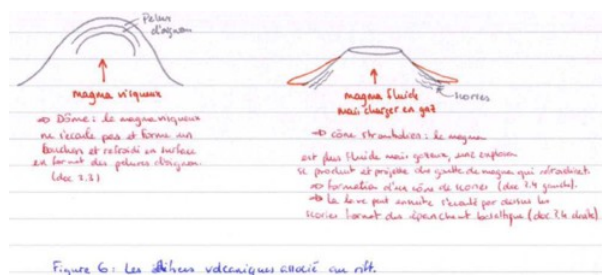 Pelure
d'oignon
magma visqueux
magma fluide
mais charger en gaz
scories
⇒ Dôme : le magma visqueux
ne s'écoule pas et forme un
bouchon et refroidi en surface
en formant des pelures d'oignon.
(doc 2.3)
⇒ cône stromboliens : le magma
est plus fluide mais gazeux, une explosion
se produit et projette des goutte de magma qui
⇒ formation d'un cône de scories (doc 2.4 gauche).
⇒ La lave peut ensuite s'écoulé par dessus les
scories formant des épanchent basaltique (doc 2.4 droite).
Figure 6 : Les édifices volcaniques associé au rift.